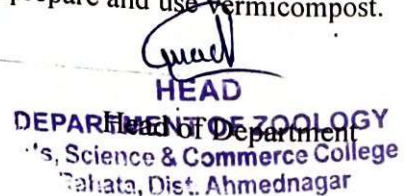 prepare and use vermicompost.
HEAD
DEPARTMENT OF ZOOLOGY
Head of Department
's, Science & Commerce College
Rahata, Dist. Ahmednagar